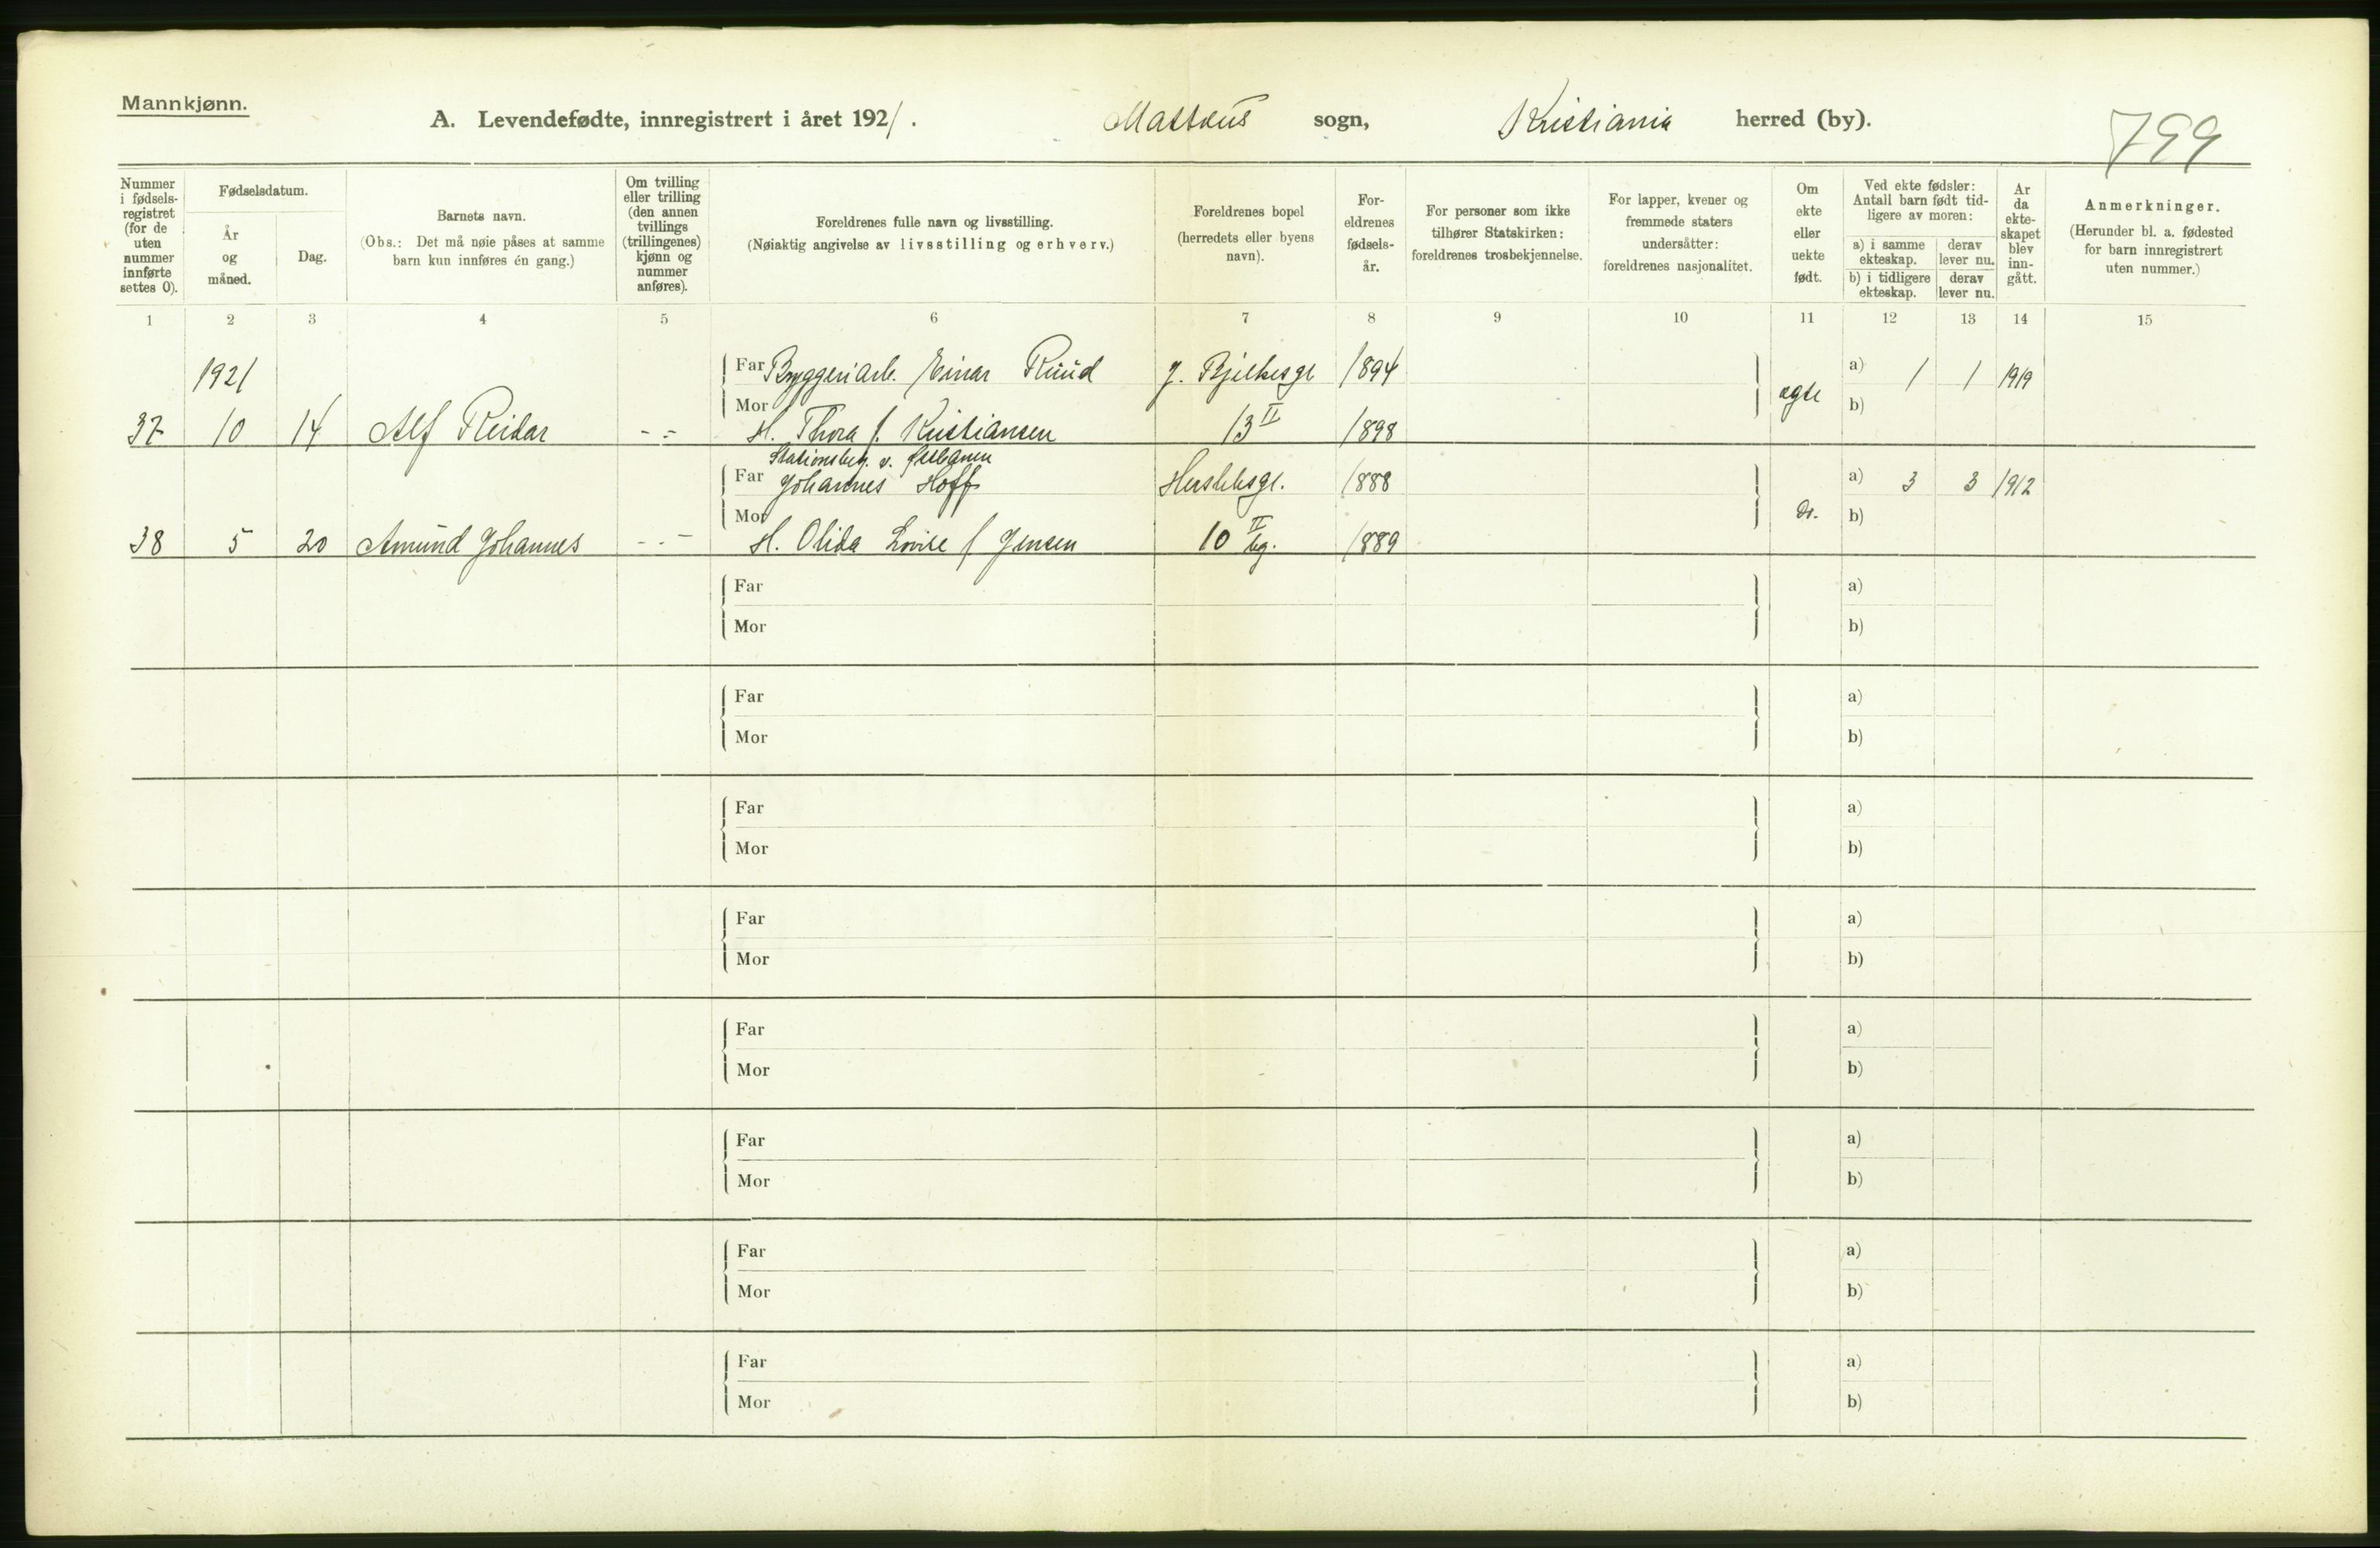 Mannkjønn.
A. Levendefødte, innregistrert i året 1921. Mattæus sogn, Kristiania herred (by). 799
Nummer i fødsels-registret (for de uten nummer innførte settes 0).
Fødselsdatum.
År og måned.
Dag.
Barnets navn.
(Obs.: Det må nøie påses at samme barn kun innføres én gang.)
Om tvilling eller trilling (den annen tvillings (trillingenes) kjønn og nummer anføres).
Foreldrenes fulle navn og livsstilling.
(Nøiaktig angivelse av livsstilling og erhverv.)
Foreldrenes bopel (herredets eller byens navn).
For-eldrenes fødsels-år.
For personer som ikke tilhører Statskirken: foreldrenes trosbekjennelse.
For lapper, kvener og fremmede staters undersåtter: foreldrenes nasjonalitet.
Om ekte eller uekte født.
Ved ekte fødsler: Antall barn født tid-ligere av moren:
a) i samme ekteskap.
derav lever nu.
b) i tidligere ekteskap.
derav lever nu.
År da ekte-skapet blev inn-gått.
Anmerkninger.
(Herunder bl. a. fødested for barn innregistrert uten nummer.)
1 2 3 4 5 6 7 8 9 10 11 12 13 14 15
1921 Far Bryggeriarb. Einar Ruud J. Bjelkesgt 1894 ægte a) 1 1 1919
Mor b)
37 10 14 Alf Reidar - - - H. Thora f. Kristiansen 13 II 1898
Stationsbetj. v.
Far Johannes Hoff Herslebsgt. 1888 a) 3 3 1912
Mor Do. b)
38 5 20 Amund Johannes - - - H. Olida Lovise f Jensen 10 II bg. 1889
Far a)
Mor b)
Far a)
Mor b)
Far a)
Mor b)
Far a)
Mor b)
Far a)
Mor b)
Far a)
Mor b)
Far a)
Mor b)
Far a)
Mor b)